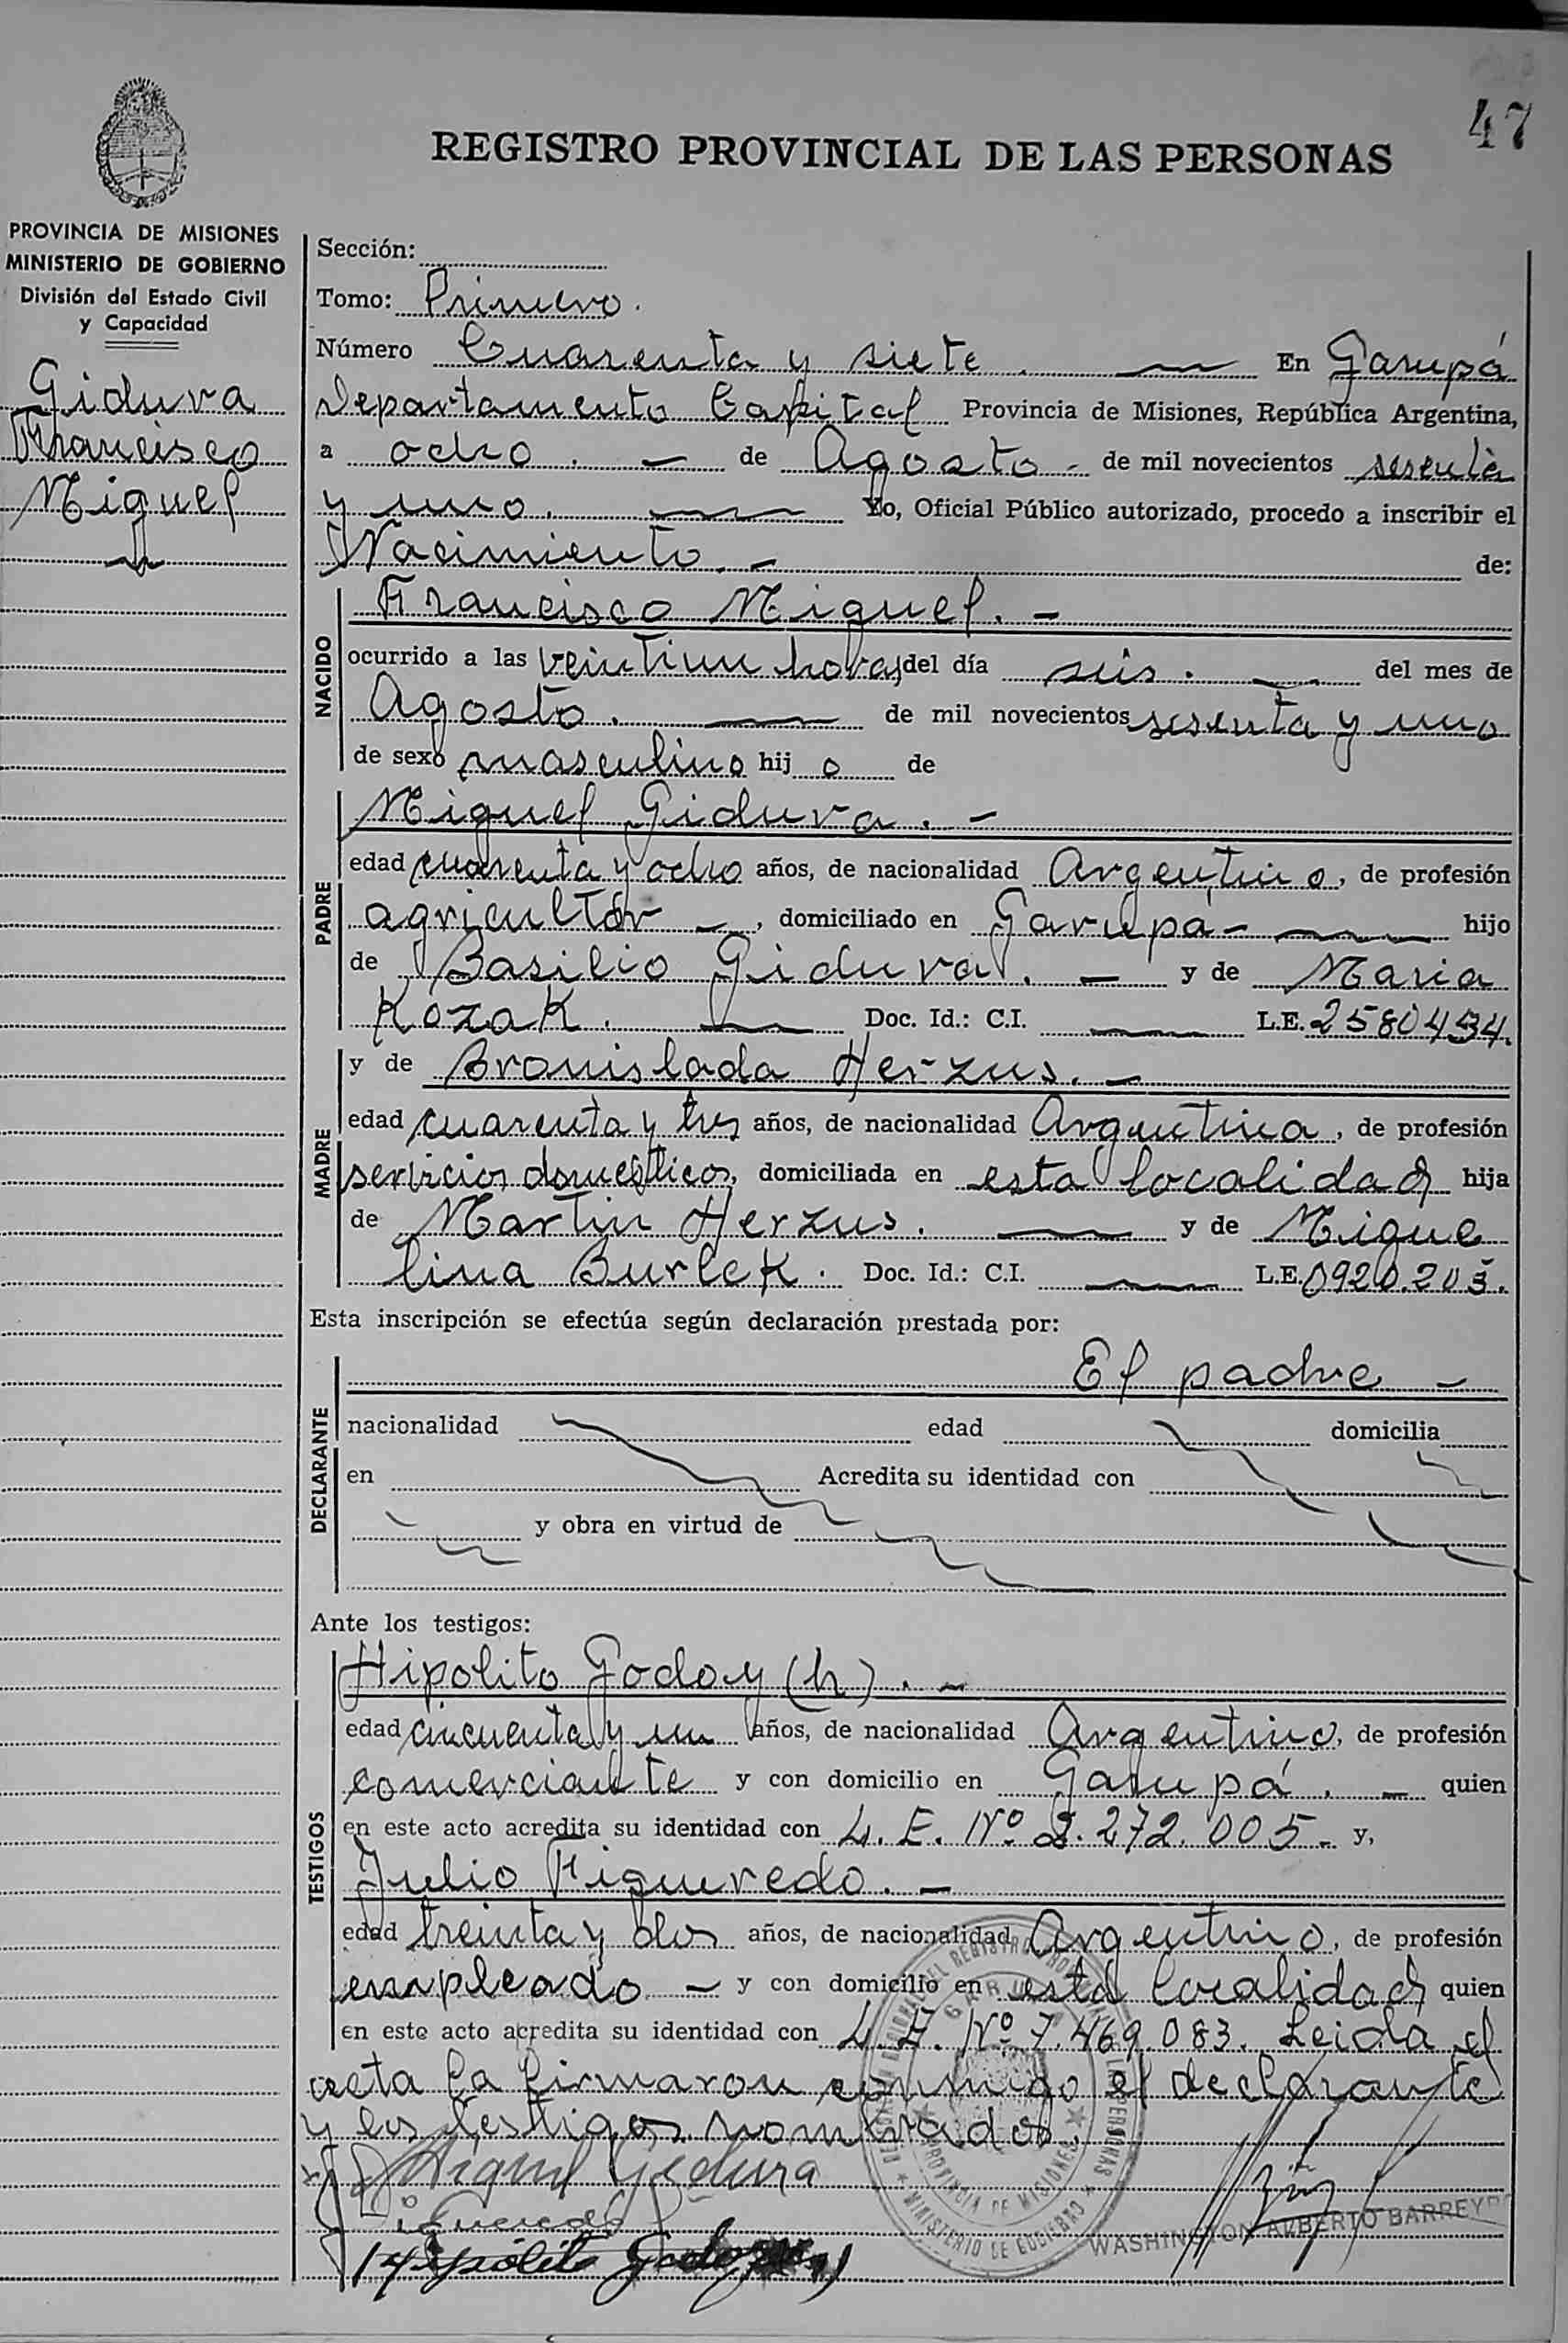 47
REGISTRO PROVINCIAL DE LAS PERSONAS
PROVINCIA DE MISIONES
MINISTERIO DE GOBIERNO
División del Estado Civil
y Capacidad
Gidura
Francisco
Miguel
Sección:
Tomo: Primero.
Número Cuarenta y siete. En Garupá
Departamento Capital Provincia de Misiones, República Argentina,
a ocho. — de Agosto - de mil novecientos sesenta
y uno. Yo, Oficial Público autorizado, procedo a inscribir el
Nacimiento. - de:
NACIDO
Francisco Miguel. -
ocurrido a las veintiun horas del día seis. — del mes de
Agosto. — de mil novecientos sesenta y uno
de sexo masculino hijo de
PADRE
Miguel Gidura. -
edad cuarenta y ocho años, de nacionalidad Argentino, de profesión
agricultor —, domiciliado en Garupá - hijo
de Basilio Gidura. — y de Maria
Kozak. — Doc. Id.: C.I. — L.E. 2580434.
MADRE
y de Bronislada Herzus. -
edad cuarenta y tres años, de nacionalidad Argentina, de profesión
servicios domésticos, domiciliada en esta localidad hija
de Martin Herzus. — y de Migue
lina Burlek. Doc. Id.: C.I. — L.E. 0920.203.
Esta inscripción se efectúa según declaración prestada por:
DECLARANTE
El padre -
nacionalidad edad domicilia
en Acredita su identidad con
y obra en virtud de
Ante los testigos:
TESTIGOS
Hipolito Godoy (h). -
edad cincuenta y un años, de nacionalidad Argentino, de profesión
comerciante y con domicilio en Garupá. — quien
en este acto acredita su identidad con L. E. Nº 2.272.005 - y,
Julio Figueredo. -
edad treinta y dos años, de nacionalidad Argentino, de profesión
empleado — y con domicilio en esta localidad quien
en este acto acredita su identidad con L. E. Nº 7.469.083. Leida el
acta la firmaron conmigo el declarante
y los testigos nombrados.
Miguel Giedura
Figueredo
Hipólito Godoy
DELEGACION REGIONAL DEL REGISTRO PROVINCIAL DE LAS PERSONAS
GARUPA
PROVINCIA DE MISIONES
MINISTERIO DE GOBIERNO
WASHINGTON ALBERTO BARREYRO